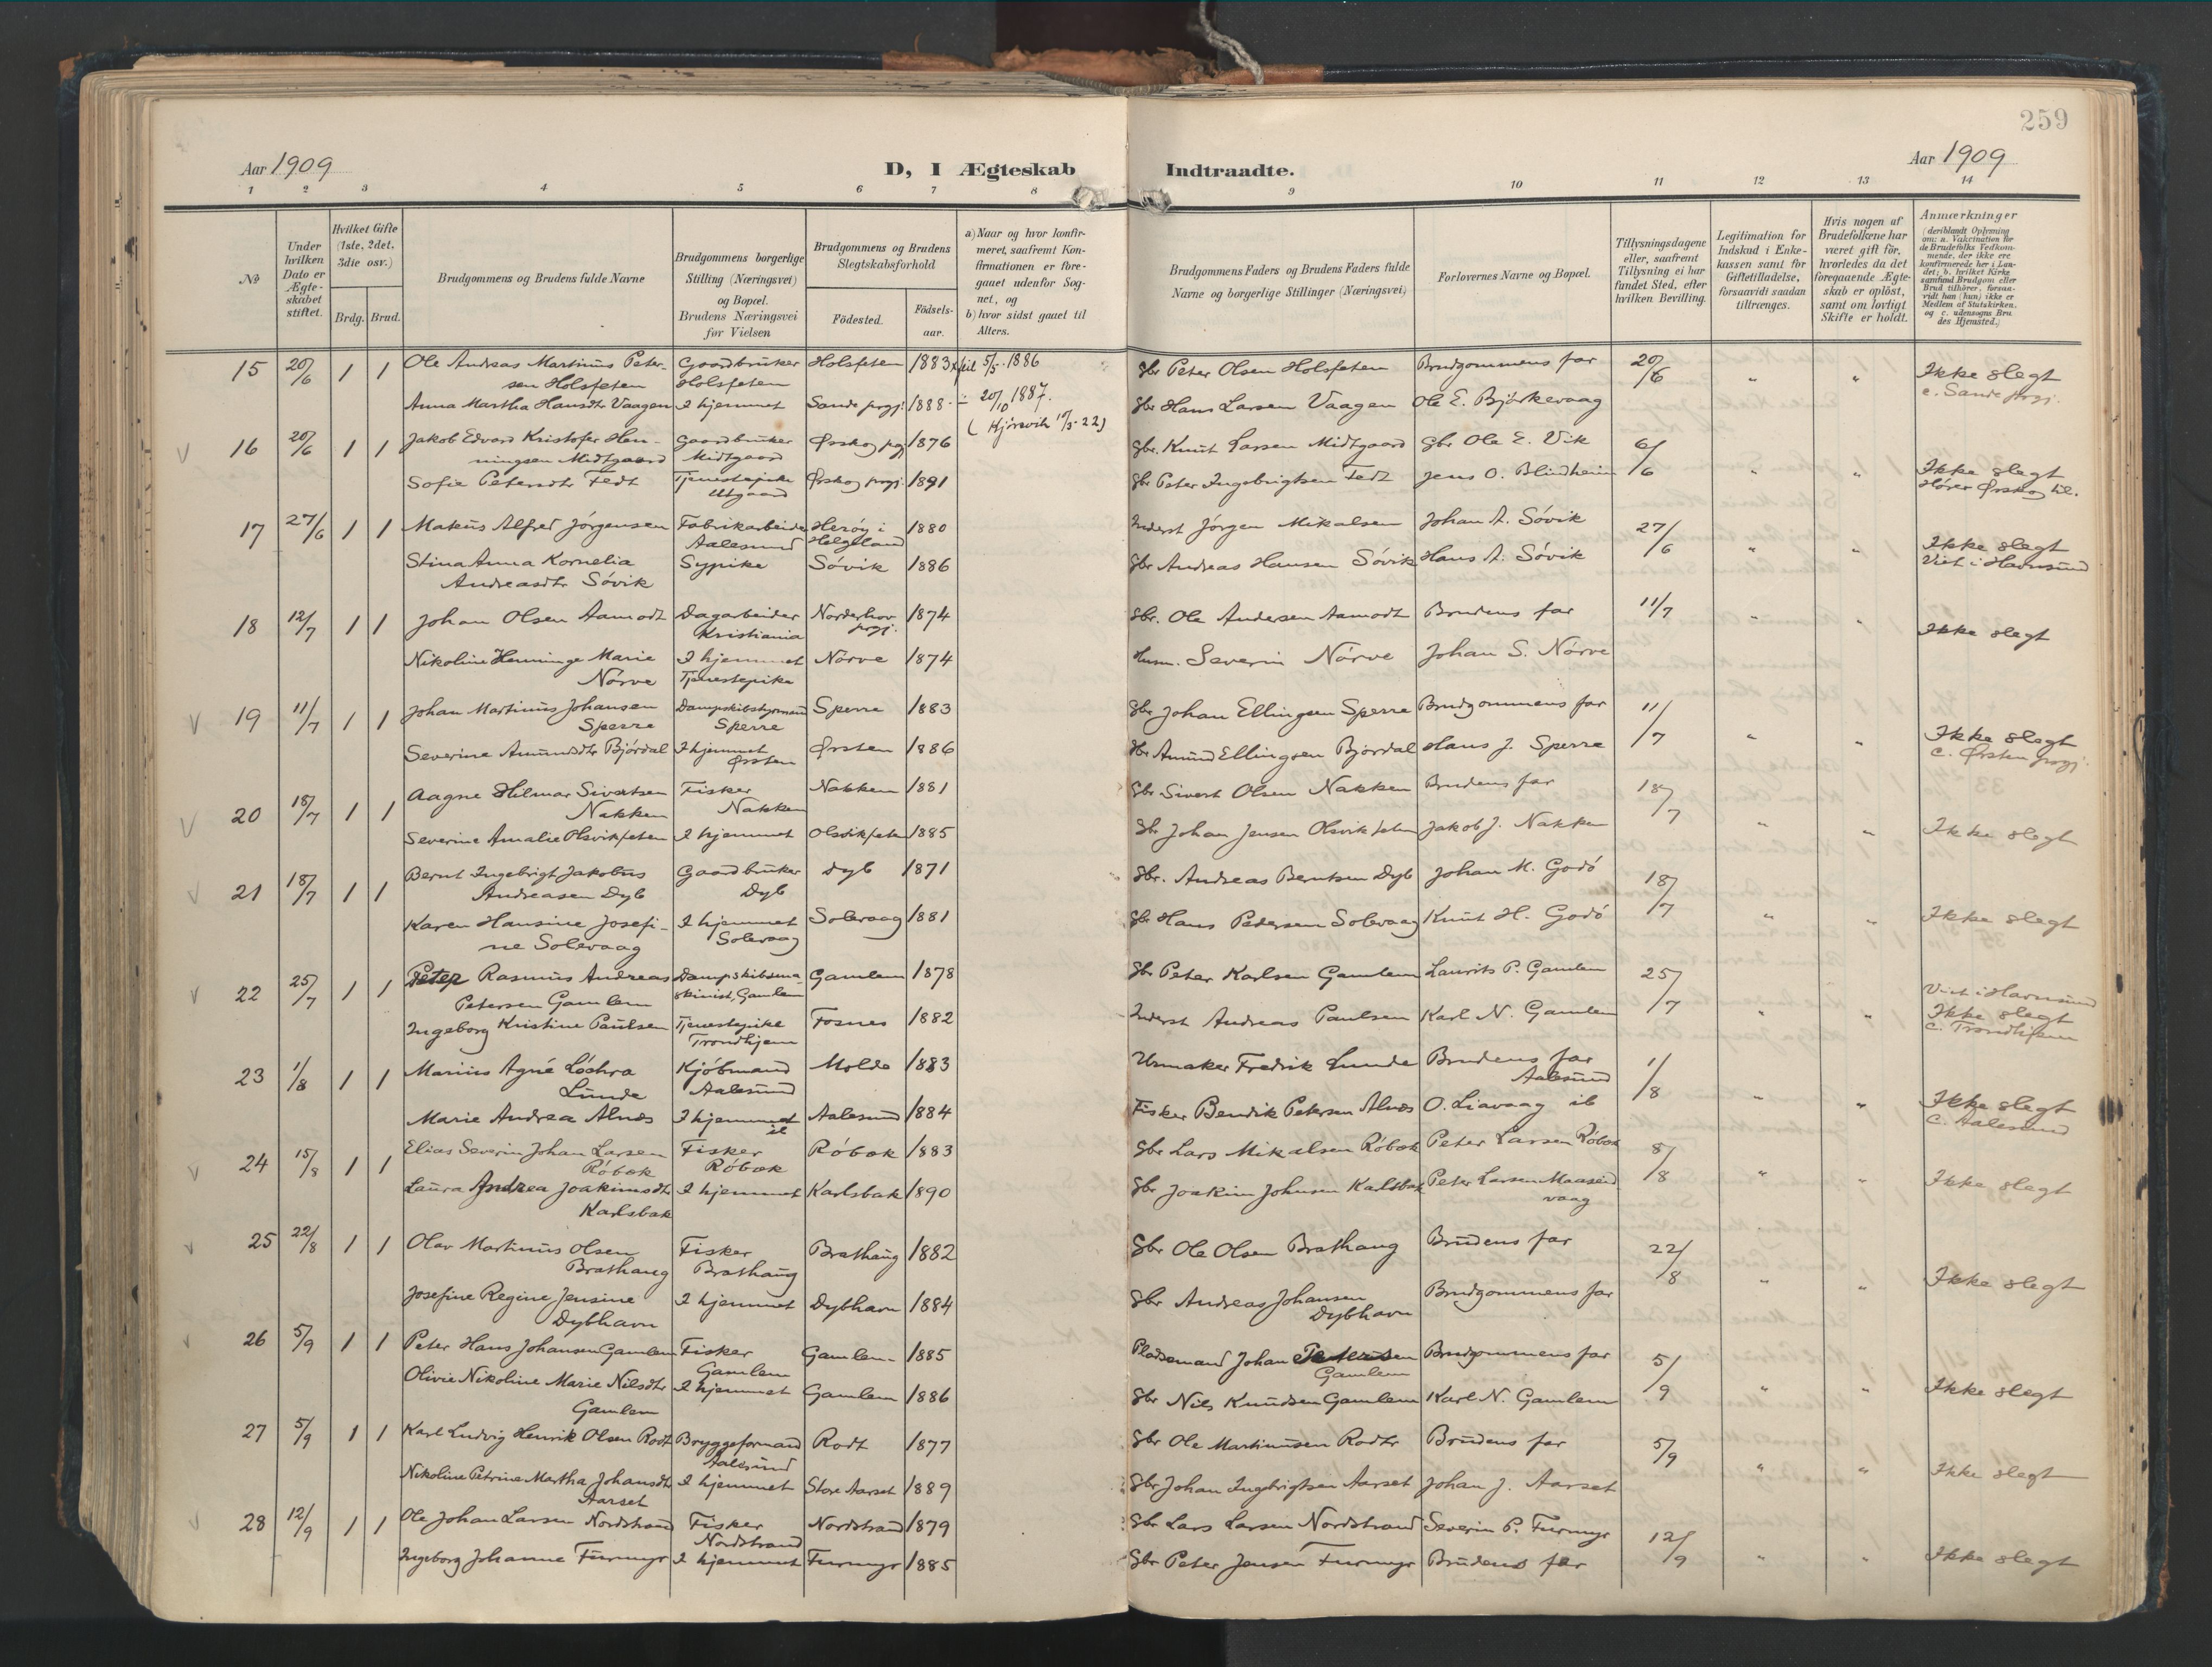 259
Aar 1909
D, I Ægteskab Indtraadte.
Aar 1909
1 2 3 4 5 6 7 8 9 10 11 12 13 14
No
Under hvilken Dato er Ægte-skabet stiftet.
Hvilket Gifte (1ste, 2det, 3die osv.)
Brdg. Brud.
Brudgommens og Brudens fulde Navne
Brudgommens borgerlige Stilling (Næringsvei) og Bopæl. Brudens Næringsvei før Vielsen
Brudgommens og Brudens Slegtskabsforhold
Födested.
Födsels-aar.
a) Naar og hvor konfir-meret, saafremt Kon-firmationen er fore-gaaet udenfor Sog-net, og
b) hvor sidst gaaet til Alters.
Brudgommens Faders og Brudens Faders fulde Navne og borgerlige Stillinger (Næringsvei)
Forlovernes Navne og Bopæl.
Tillysningsdagene eller, saafremt Tillysning ei har fundet Sted, efter hvilken Bevilling.
Legitimation for Indskud i Enke-kassen samt for Giftetilladelse, forsaavidt saadan tiltrænges.
Hvis nogen af Brudefolkene har været gift før, hvorledes da det foregaaende Ægte-skab er oplöst, samt om lovligt Skifte er holdt.
Anmærkninger (deriblandt Oplysning om: a. Vakcination for de Brudefolks Vedkom-mende, der ikke ere konfirmerede her i Lan-det; b. hvilket Kirke-samfund Brudgom eller Brud tilhörer, forsaa-vidt han (hun) ikke er Medlem af Statskirken. og c. udensogns Bru-des Hjemsted.)
15 20/6 1 1 Ole Andreas Martinus Peter- Gaardbruker Holsfeten 1883 x feil 5/5 1886 Gbr Peter Olsen Holsfeten Brudgommens far 20/6 " " Ikke slegt
sen Holsfeten Holsfeten c. Sande prgj.
Anna Martha Hansdtr Vaagen I hjemmet Sande prgj. 1888 - 20/10 1887. Gbr Hans Larsen Vaagen Ole E. Björkevaag
16 20/6 1 1 Jakob Edvard Kristofer Hen- Gaardbruker Ørskog prgj 1876 Gbr. Knut Larsen Midtgaard Gbr Ole E. Vik 6/6 " " Ikke slegt
ningsen Midtgaard Midtgaard Hører Ørskog til.
Sofie Petersdtr Fedt Tjenestepike Ørskog prgj. 1891 Gbr Peter Ingebrigtsen Fedt Jens O. Blindheim
Utgaard
17 27/6 1 1 Makus Alfred Jörgensen Fabrikarbeider Heröy i 1880 Inderst Jörgen Mikalsen Johan A. Sövik 27/6 " " Ikke slegt
Aalesund Helgeland Viet i Havnsund
Stina Anna Kornelia Sypike Sövik 1886 Gbr Andreas Hansen Sövik Hans A. Sövik
Andreasdtr Sövik
18 12/7 1 1 Johan Olsen Aamodt Dagarbeider Norderhov 1874 Gbr. Ole Andersen Aamodt Brudens far 11/7 " " Ikke slegt
Kristiania prgj.
Nikoline Henninge Marie I hjemmet Nörve 1874 Husm. Severin Nörve Johan S. Nörve
Nörve Tjenestepike
19 11/7 1 1 Johan Martinus Johansen Dampskibstyrmand Sperre 1883 Gbr Johan Ellingsen Sperre Brudgommens far 11/7 " " Ikke slegt
Sperre Sperre c. Ørsten prgj.
Severine Amundsdtr Björdal I hjemmet Ørsten 1886 Gbr Amund Ellingsen Björdal Hans J. Sperre
Ørsten
20 18/7 1 1 Aagne Hilmar Sivertsen Fisker Nakken 1881 Gbr Sivert Olsen Nakken Brudens far 18/7 " " Ikke slegt
Nakken Nakken
Severine Amalie Olsvikfeten I hjemmet Olsvikfeten 1885 Gbr Johan Jensen Olsvikfeten Jakob J. Nakken
21 18/7 1 1 Bernt Ingebrigt Jakobus Gaardbruker Dyb 1871 Gbr. Andreas Berntsen Dyb Johan M. Godö 18/7 " " Ikke slegt
Andreasen Dyb Dyb
Karen Hansine Josefi- I hjemmet Solevaag 1881 Gbr Hans Pedersen Solevaag Knut H. Godö
ne Solevaag Solevaag
22 25/7 1 1 Peter Rasmus Andreas Dampskibsma- Gamlem 1878 Gbr Peter Karlsen Gamlem Laurits P. Gamlem 25/7 " " Viet i Havnsund
Petersen Gamlem skinist, Gamlem Ikke slegt
Ingeborg Kristine Paulsen Tjenestepike Fosnes 1882 Inderst Andreas Paulsen Karl N. Gamlem c. Trondhjem
Trondhjem
23 1/8 1 1 Marius Agné Löchra Kjöbmand Molde 1883 Urmaker Fredrik Lunde Brudens far 1/8 " " Ikke slegt
Lunde Aalesund Aalesund c. Aalesund
Marie Andrea Alnæs I hjemmet Aalesund 1884 Fisker Bendik Petersen Alnæs O. Liavaag ib
ib
24 15/8 1 1 Elias Severin Johan Larsen Fisker Röbæk 1883 Gbr Lars Mikalsen Röbæk Peter Larsen Röbæk 8/8 " " Ikke slegt
Röbæk Röbæk
Laura Andrea Joakimsdtr I hjemmet Karlsbak 1890 Gbr Joakim Johnsen Karlsbak Peter Larsen Maaseid-
Karlsbak vaag
25 22/8 1 1 Olav Martinus Olsen Fisker Brathaug 1882 Gbr Ole Olsen Brathaug Brudens far 22/8 " " Ikke slegt
Brathaug Brathaug
Josefine Regine Jensine I hjemmet Dybhavn 1884 Gbr Andreas Johansen Brudgommens far
Dybhavn Dybhavn
26 5/9 1 1 Peter Hans Johansen Gamlem Fisker Gamlem 1885 Pladsemand Johan Petersen Brudgommens far 5/9 " " Ikke slegt
Gamlem Gamlem
Olivie Nikoline Marie Nilsdtr I hjemmet Gamlem 1886 Gbr Nils Knudsen Gamlem Karl N. Gamlem
Gamlem
27 5/9 1 1 Karl Ludvig Henrik Olsen Rodt Bryggeformand Rodt 1877 Gbr Ole Martinusen Rodt Brudens far 5/9 " " Ikke slegt
Aalesund
Nikoline Petrine Martha Johansdtr I hjemmet Store Aarset 1889 Gbr Johan Ingebrigtsen Aarset Johan J. Aarset
Aarset
28 12/9 1 1 Ole Johan Larsen Nordstrand Fisker Nordstrand 1879 Gbr Lars Larsen Nordstrand Severin P. Furmyr 12/9 " " Ikke slegt
Nordstrand
Ingeborg Johanne Furmyr I hjemmet Furmyr 1885 Gbr Peter Jensen Furmyr Brudens far